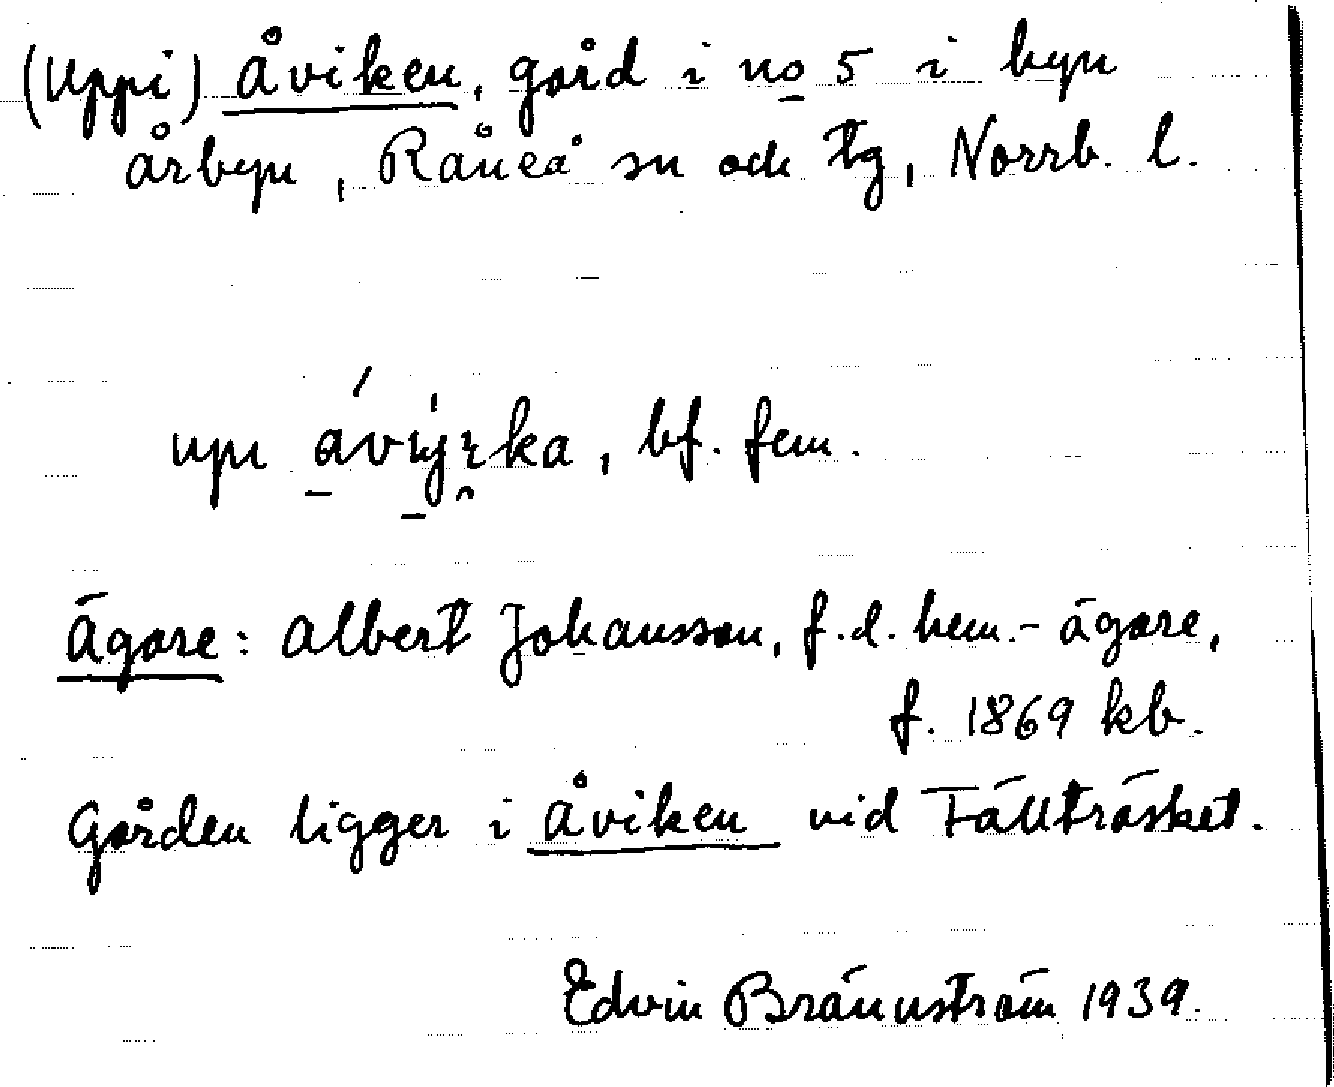 (Uppi) Åviken, gård i no 5 i byn
Årbyn, Råneå sn och tg, Norrb. l.
upi åvijrka, bf. fem.
Ägare: Albert Johansson, f.d. hem.-ägare,
f. 1869 kb.
Gården ligger i Åviken vid Fällträsket.
Edvin Brännström 1939.